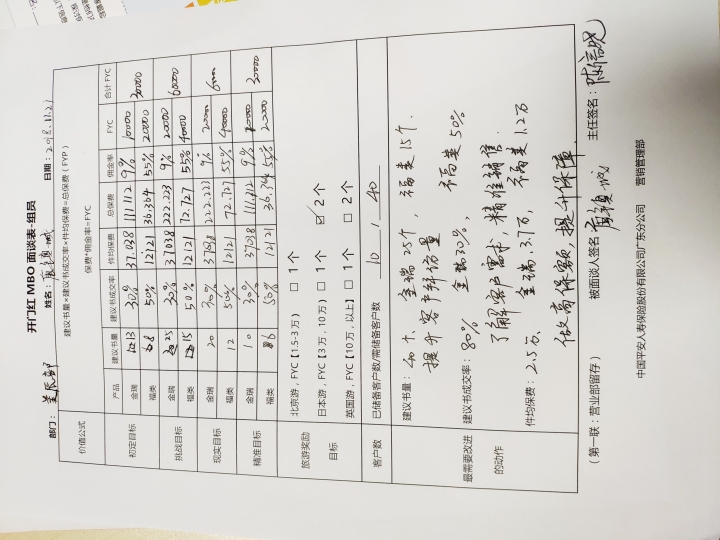 开门红 MBO 面谈表-组员
部门： 姓名： 日期：2018.11.21
价值公式 建议书量×建议书成交率×件均保费=总保费（FYP）
保费*佣金率=FYC
产品 建议书量 建议书成交率 件均保费 总保费 佣金率 FYC 合计 FYC
初定目标 金瑞 13 30% 37.038 111.112 9% 10000 30000
福类 8 50% 12121 36.364 55% 20000
挑战目标 金瑞 25 30% 37038 222.223 9% 20000 60000
福类 15 50% 12121 72.727 55% 40000
现实目标 金瑞 20 30% 37038 222.223 9% 20000
福类 12 50% 12121 72.727 55% 40000
精准目标 金瑞 10 30% 37038 111.112 9% 10000 30000
福类 6 50% 12121 36.364 55% 20000
旅游奖励
目标
北京游，FYC【1.5-3 万） □ 1 个
日本游，FYC【3 万，10 万） □ 1 个 ☑ 2 个
英国游，FYC【10 万，以上】 □ 1 个 □ 2 个
客户数 已储备客户数/需储备客户数 10 / 40
最需要改进
的动作
建议书量：40个． 金瑞25个， 福类15个．
提升客户拜访量
建议书成交率：80% 金瑞30%， 福类50%
了解客户需求，精准销售．
件均保费：2.5万． 金瑞3.7万， 福类1.2万
做高保额，提升保障．
（第一联：营业部留存） 被面谈人签名 主任签名：
中国平安人寿保险股份有限公司广东分公司 营销管理部